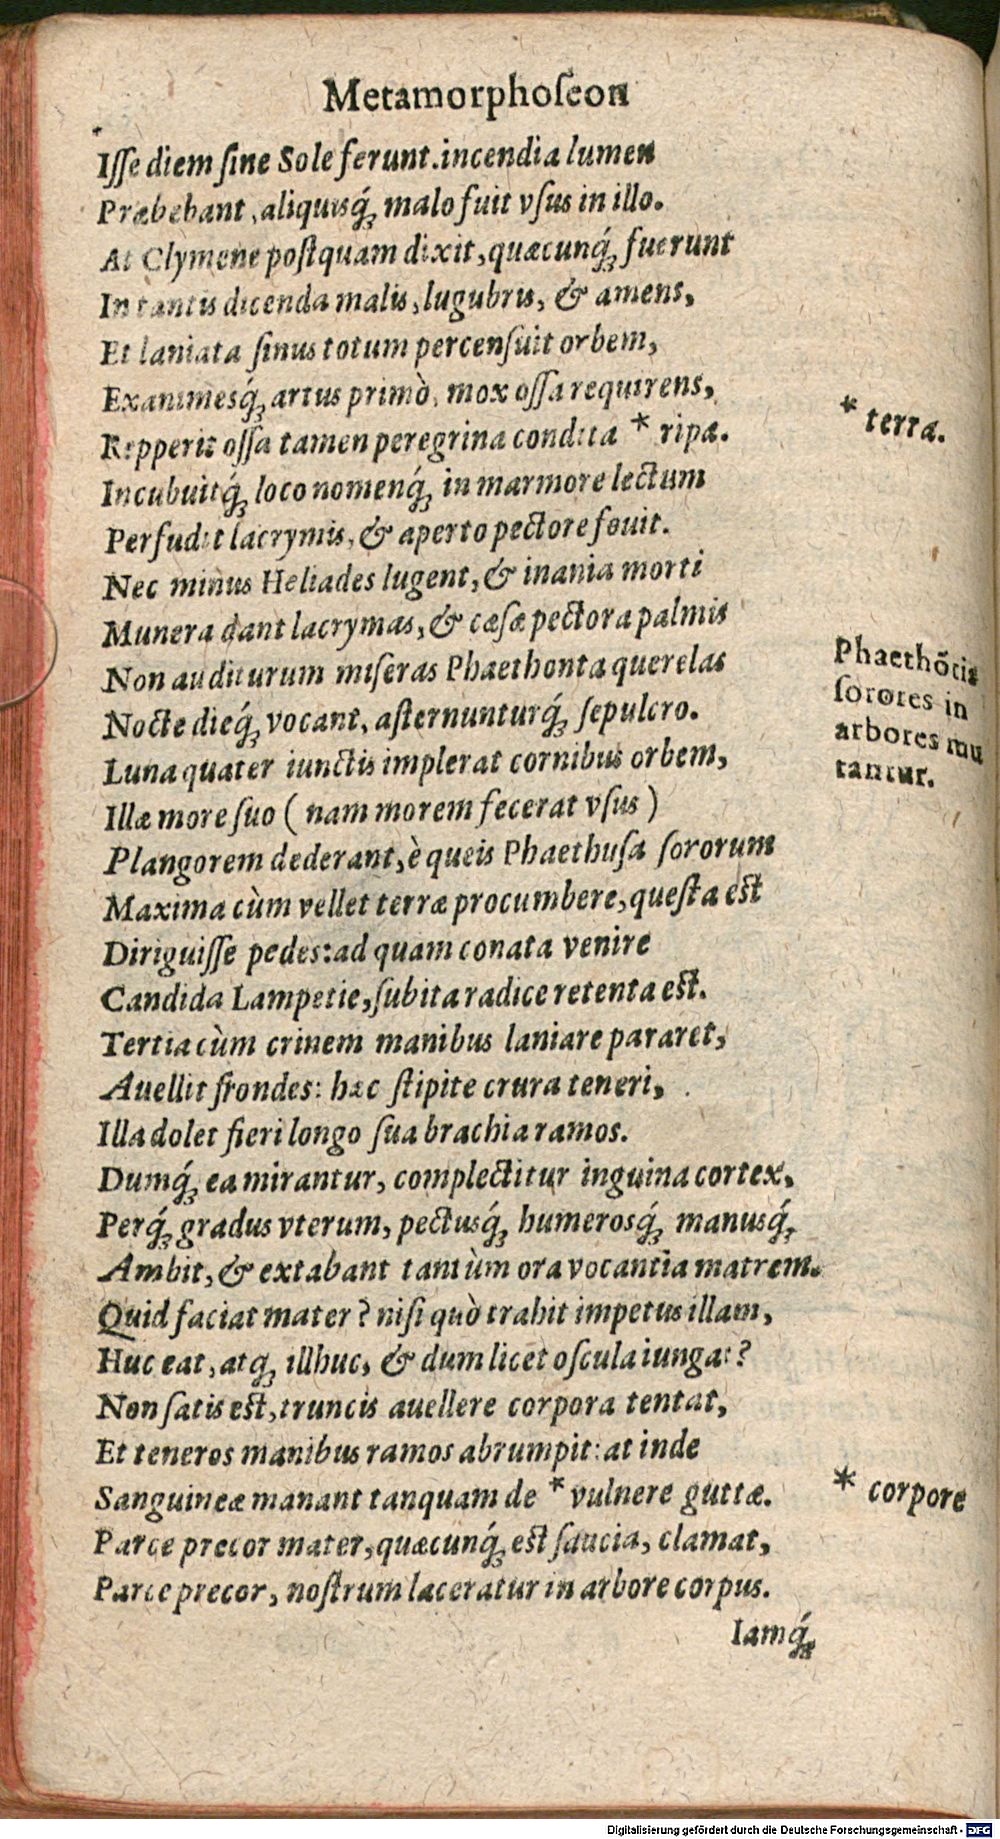 Metamorphoſeon
Iſſe diem ſine Sole ferunt. incendia lumen
Præbebant, aliquisq́ꝫ malo fuit vſus in illo.
At Clymene poſtquam dixit, quæcunq́ꝫ fuerunt
In tantis dicenda malis, lugubris, & amens,
Et laniata ſinus totum percenſuit orbem,
Exanimesq́ꝫ artus primò, mox oſſa requirens,
Repperit oſſa tamen peregrina condita * ripa.
* terra.
Incubuitq́ꝫ loco nomenq́ꝫ in marmore lectum
Perfudit lacrymis, & aperto pectore fouit.
Nec minus Heliades lugent, & inania morti
Munera dant lacrymas, & cæſæ pectora palmis
Non auditurum miſeras Phaethonta querelas
Phaethõtis
ſorores in
arbores mu
tantur.
Nocte dieq́ꝫ vocant, aſternunturq́ꝫ ſepulcro.
Luna quater iunctis implerat cornibus orbem,
Illæ more ſuo ( nam morem fecerat vſus )
Plangorem dederant, è queis Phaethuſa ſororum
Maxima cùm vellet terræ procumbere, queſta eſt
Diriguiſſe pedes: ad quam conata venire
Candida Lampetie, ſubita radice retenta eſt.
Tertia cùm crinem manibus laniare pararet,
Auellit frondes: hæc ſtipite crura teneri,
Illa dolet fieri longo ſua brachia ramos.
Dumq́ꝫ ea mirantur, complectitur inguina cortex,
Perq́ꝫ gradus vterum, pectusq́ꝫ humerosq́ꝫ manusq́ꝫ
Ambit, & extabant tantùm ora vocantia matrem.
Quid faciat mater? niſi quò trahit impetus illam,
Huc eat, atqꝫ illhuc, & dum licet oſcula iungat?
Non ſatis eſt, truncis auellere corpora tentat,
Et teneros manibus ramos abrumpit: at inde
Sanguineæ manant tanquam de * vulnere guttæ.
* corpore
Parce precor mater, quæcunq́ꝫ eſt ſaucia, clamat,
Parce precor, noſtrum laceratur in arbore corpus.
Iamq́ꝫ
Digitalisierung gefördert durch die Deutsche Forschungsgemeinschaft - DFG